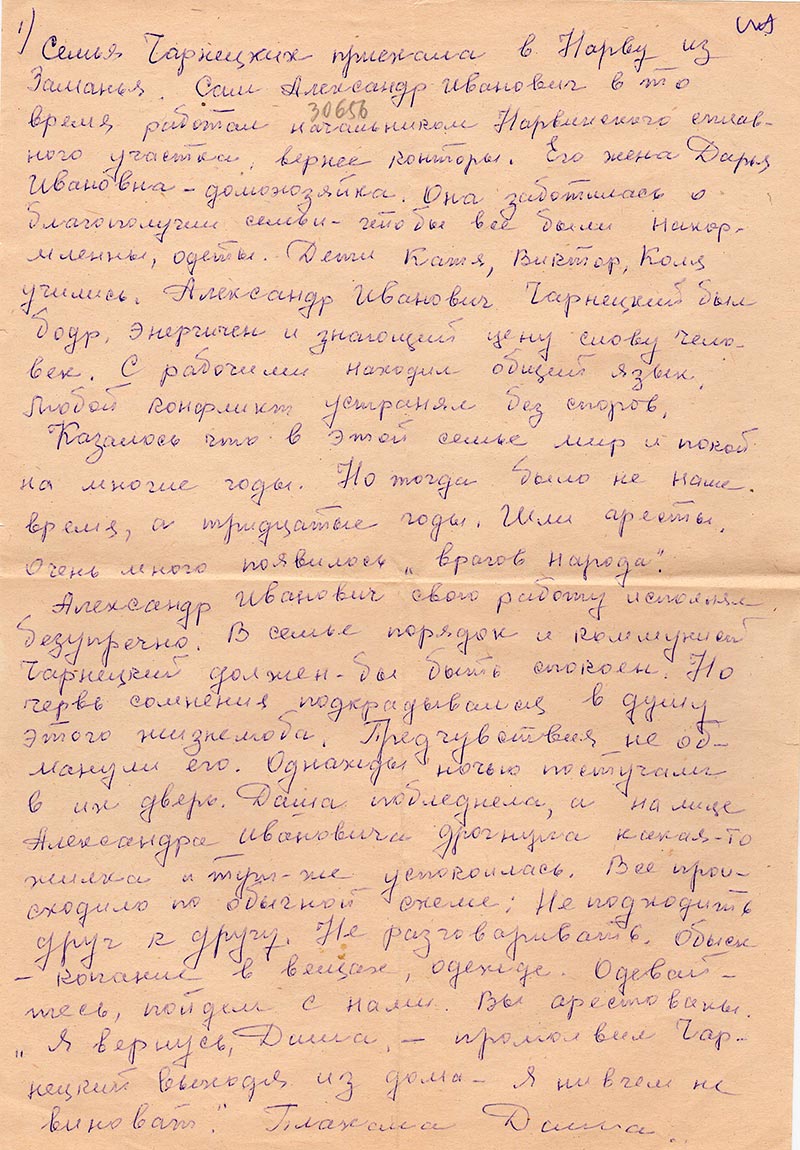 1)
Семья Чарнецких приехала в Нарву из
Заманья. Сам Александр Иванович в то
30656
время работал начальником Нарвинского сплав-
ного участка, вернее конторы. Его жена Дарья
Ивановна - домохозяйка. Она заботилась о
благополучии семьи - чтобы все были накор-
мленны, одеты. Дети Катя, Виктор, Коля
учились. Александр Иванович Чарнецкий был
бодр, энергичен и знающий цену слову чело-
век. С рабочими находил общий язык,
любой конфликт устранял без споров.
Казалось что в этой семье мир и покой
на многие годы. Но тогда было не наше
время, а тридцатые годы. Шли аресты.
Очень много появилось „врагов народа".
Александр Иванович свою работу исполнял
безупречно. В семье порядок и коммунист
Чарнецкий должен-бы быть спокоен. Но
червь сомнения подкрадывался в душу
этого жизнелюба. Предчувствия не об-
манули его. Однажды ночью постучали
в их дверь. Даша побледнела, а на лице
Александра Ивановича дрогнула какая-то
жилка и тут-же успокоилась. Все прои-
сходило по обычной схеме: Не подходить
друг к другу. Не разговаривать. Обыск
- копание в вещах, одежде. Одевай-
тесь, пойдем с нами. Вы арестованы.
„Я вернусь, Даша, - промолвил Чар-
нецкий выходя из дома - Я ни в чем не
виноват". Плакала Даша..